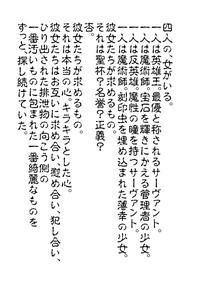 四人の「女」がいる。
一人は英雄王。最優と称されるサーヴァント。
一人は魔術師。宝石を輝きにかえる管理者の少女。
一人は反英雄。魔性の瞳を持つサーヴァント。
一人は魔術師。刻印虫を埋め込まれた薄幸の少女。
彼女たちが求めるもの。
それは聖杯？名誉？正義？
否。
彼女たちが求めるもの。
それは本当の心。キラキラとした心。
彼女たちはお互いに求め合い、慰め合い、犯し合い、
ひり出された排泄物の向こう側の
一番汚いものに包まれた一番綺麗なものを
ずっと、探し続けていた。